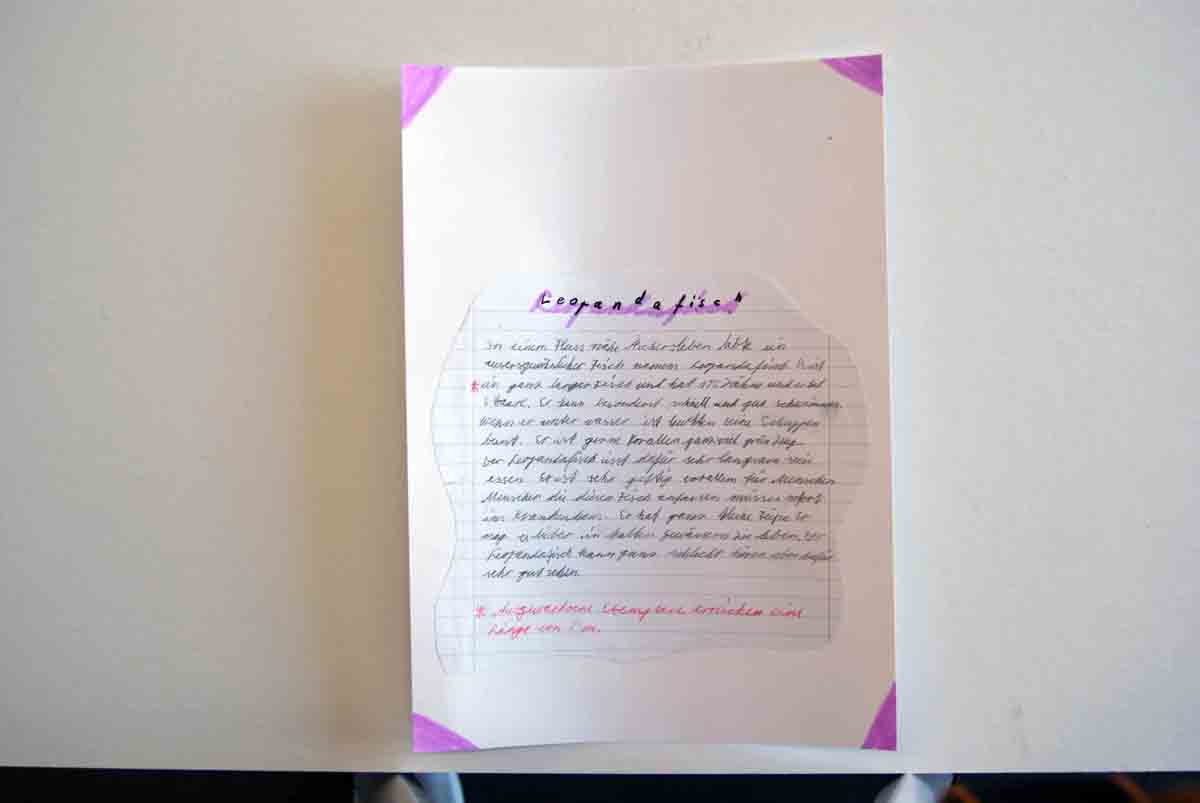 Leopandafisch
In einem Fluss nähe lebte ein
Fisch namens Leopandafisch
ein ganz langer Fisch und hat Zähne und er hat
Er kann besonders schnell und gut schwimmen.
Wenn er unter wasser ist seine Schuppen
bunt. Er ist gerne Korallen ganz viel
Der Leopandafisch isst dafür sehr langsam sein
essen. Er ist sehr giftig vorallem für Menschen
Menschen die diesen Fisch anfassen müssen sofort
ins Krankenhaus. Er hat ganz Er
mag es lieber in kalten Gewässern zu leben. Der
Leopandafisch kann ganz schlecht hören aber dafür
sehr gut sehen.
* Exemplare erreichen eine
Länge von m.